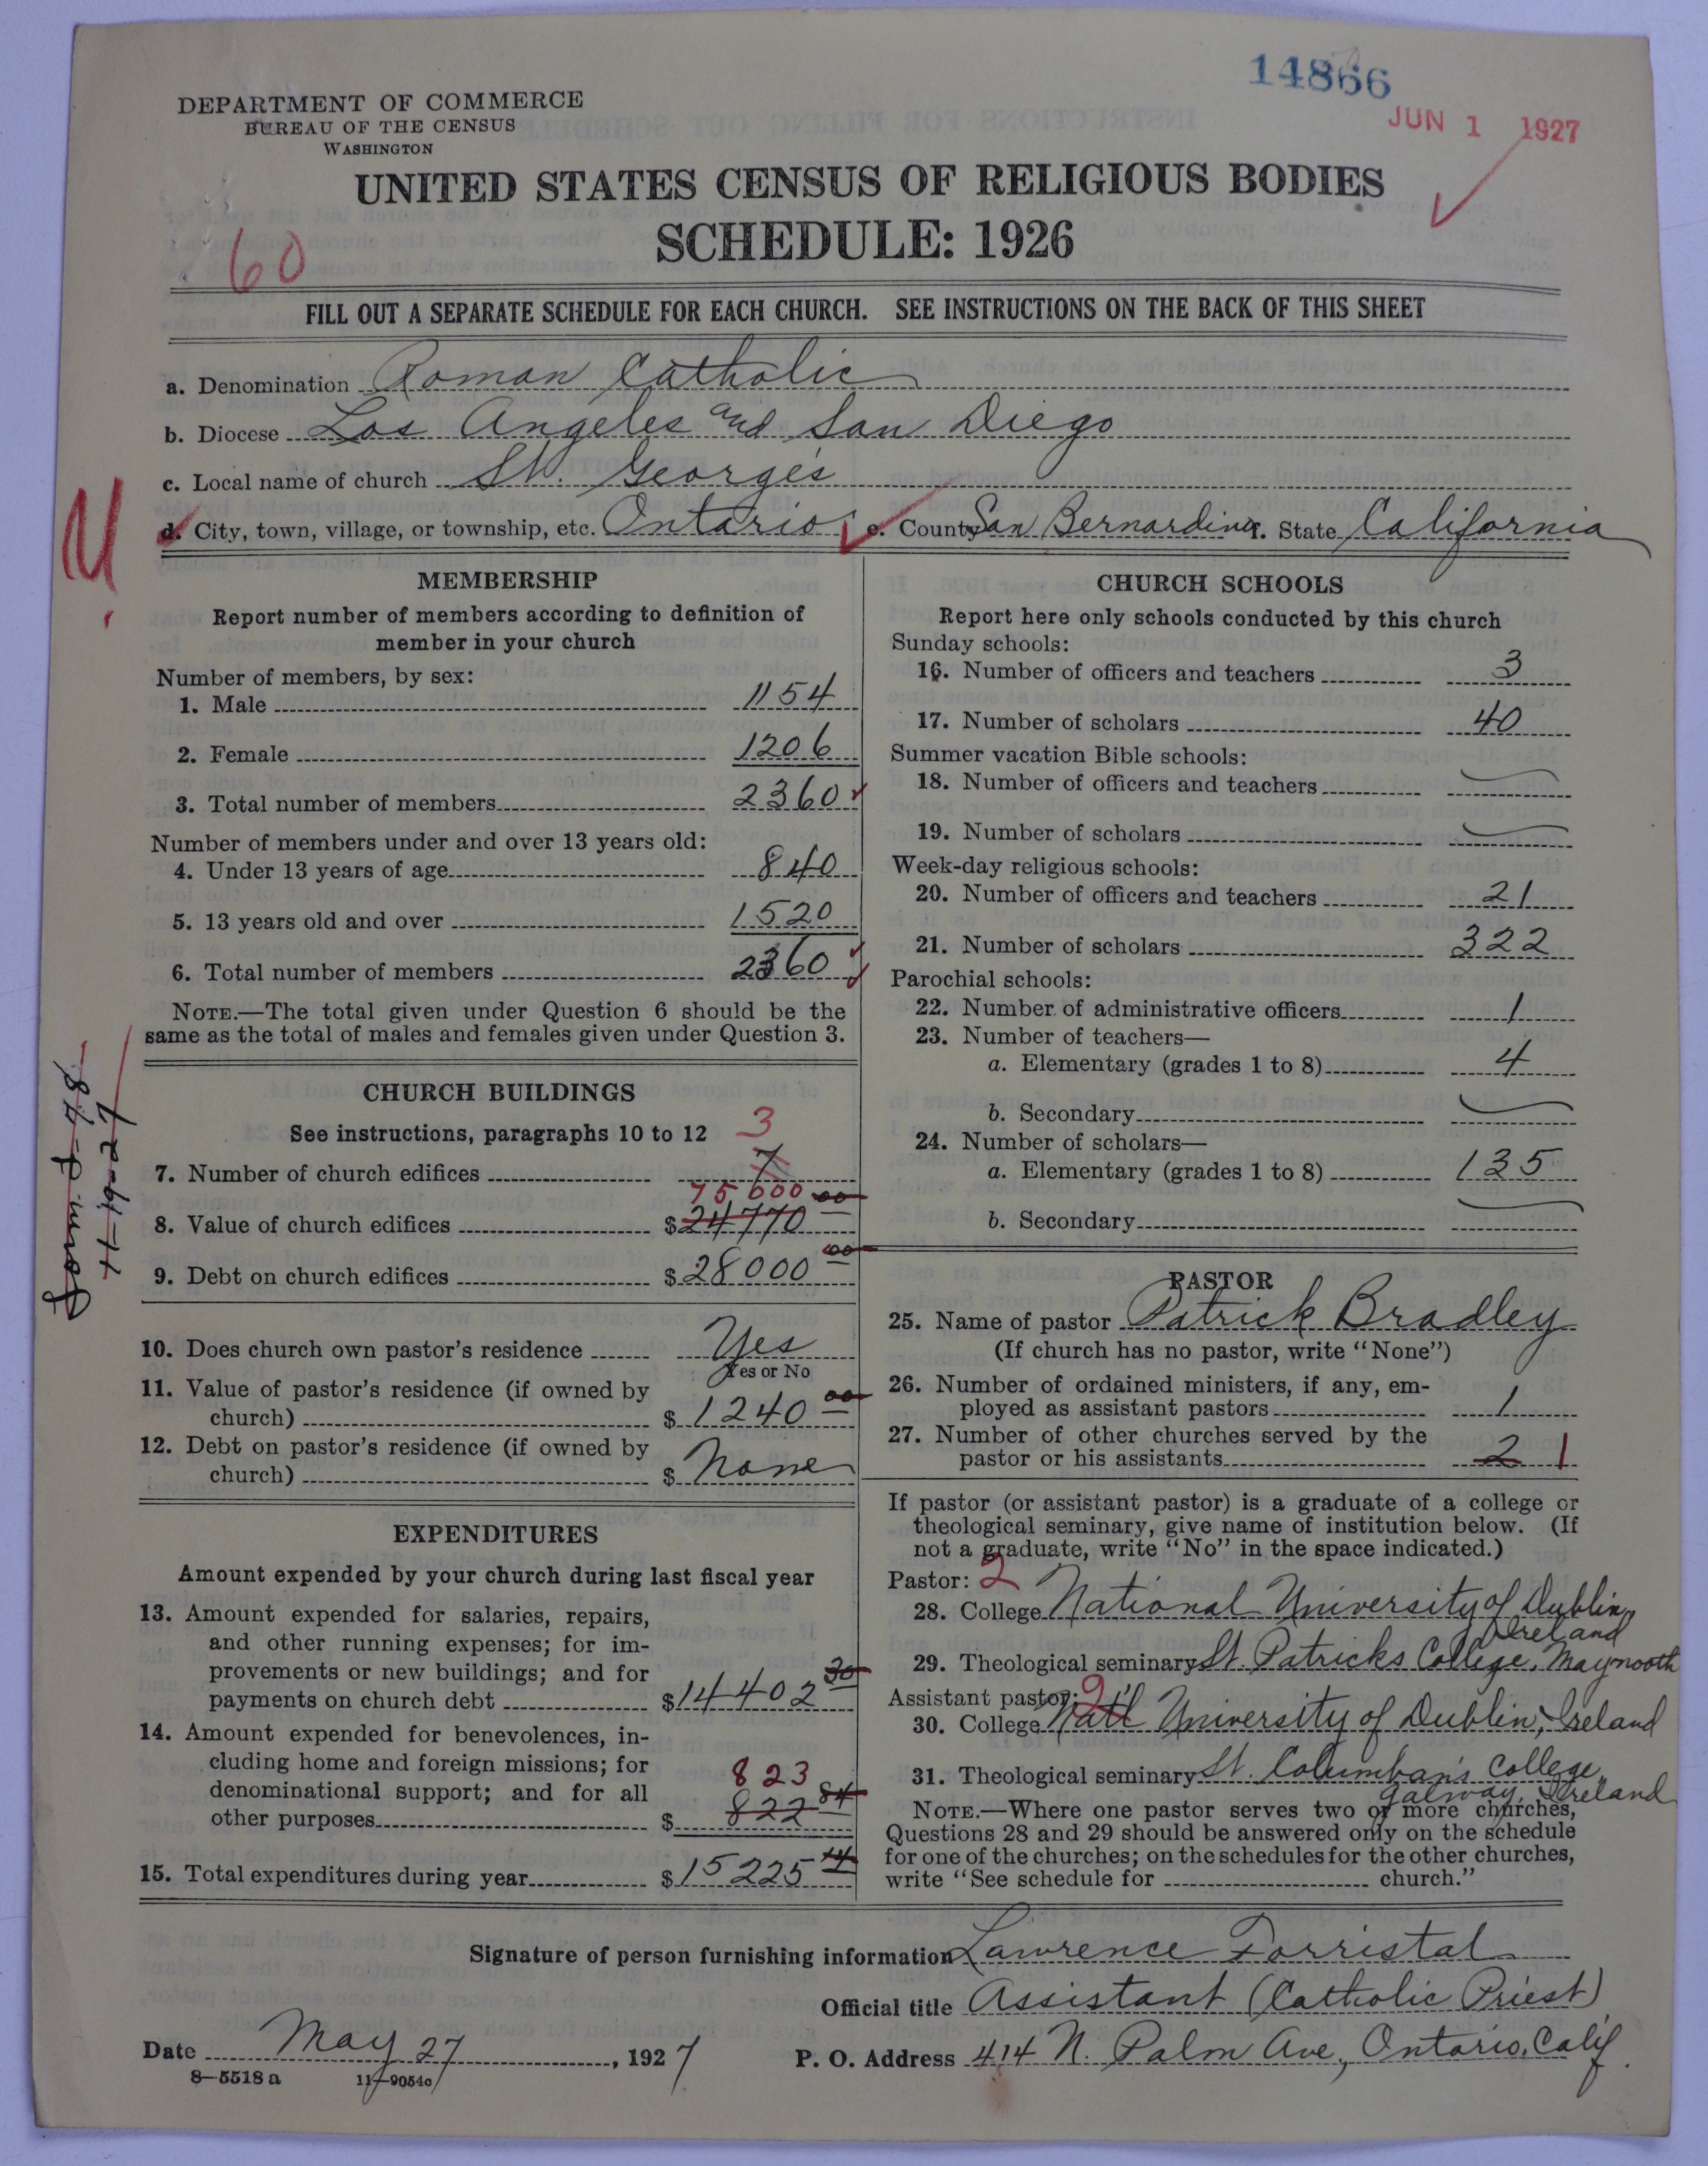 14866
JUN 1 1927
DEPARTMENT OF COMMERCE
BUREAU OF THE CENSUS
WASHINGTON
UNITED STATES CENSUS OF RELIGIOUS BODIES
SCHEDULE: 1926
60
FILL OUT A SEPARATE SCHEDULE FOR EACH CHURCH. SEE INSTRUCTIONS ON THE BACK OF THIS SHEET
a. Denomination Roman Catholic
b. Diocese Los Angeles and San Diego
c. Local name of church St. George's
d. City, town, village, or township, etc. Ontario e. County San Bernardino f. State California
MEMBERSHIP
Report number of members according to definition of
member in your church
Number of members, by sex:
1. Male 1154
2. Female 1206
3. Total number of members 2360
Number of members under and over 13 years old:
4. Under 13 years of age 840
5. 13 years old and over 1520
6. Total number of members 2360
NOTE.—The total given under Question 6 should be the
same as the total of males and females given under Question 3.
CHURCH BUILDINGS
See instructions, paragraphs 10 to 12
3
7. Number of church edifices 7
75,000
8. Value of church edifices $24770 00
9. Debt on church edifices $28000 00
10. Does church own pastor's residence Yes
Yes or No
11. Value of pastor's residence (if owned by
church) $1240 00
12. Debt on pastor's residence (if owned by
church) $ None
EXPENDITURES
Amount expended by your church during last fiscal year
13. Amount expended for salaries, repairs,
and other running expenses; for im-
provements or new buildings; and for
payments on church debt $14402 30
14. Amount expended for benevolences, in-
cluding home and foreign missions; for
denominational support; and for all 823
other purposes $ 822 84
15. Total expenditures during year $15225 14
CHURCH SCHOOLS
Report here only schools conducted by this church
Sunday schools:
16. Number of officers and teachers 3
17. Number of scholars 40
Summer vacation Bible schools:
18. Number of officers and teachers
19. Number of scholars
Week-day religious schools:
20. Number of officers and teachers 21
21. Number of scholars 322
Parochial schools:
22. Number of administrative officers 1
23. Number of teachers—
a. Elementary (grades 1 to 8) 4
b. Secondary
24. Number of scholars—
a. Elementary (grades 1 to 8) 135
b. Secondary
PASTOR
25. Name of pastor Patrick Bradley
(If church has no pastor, write "None")
26. Number of ordained ministers, if any, em-
ployed as assistant pastors 1
27. Number of other churches served by the
pastor or his assistants 2 1
If pastor (or assistant pastor) is a graduate of a college or
theological seminary, give name of institution below. (If
not a graduate, write "No" in the space indicated.)
Pastor: 2
28. College National University of Dublin,
Ireland
29. Theological seminary St. Patricks College, Maynooth
Assistant pastor: 2
30. College Nat'l University of Dublin, Ireland
31. Theological seminary St. Columban's College,
Galway, Ireland
NOTE.—Where one pastor serves two or more churches,
Questions 28 and 29 should be answered only on the schedule
for one of the churches; on the schedules for the other churches,
write "See schedule for church."
Signature of person furnishing information Lawrence Forristal
Official title Assistant (Catholic Priest)
Date May 27, 1927 P. O. Address 414 N. Palm Ave, Ontario, Calif.
8—5518 a 11—9054c